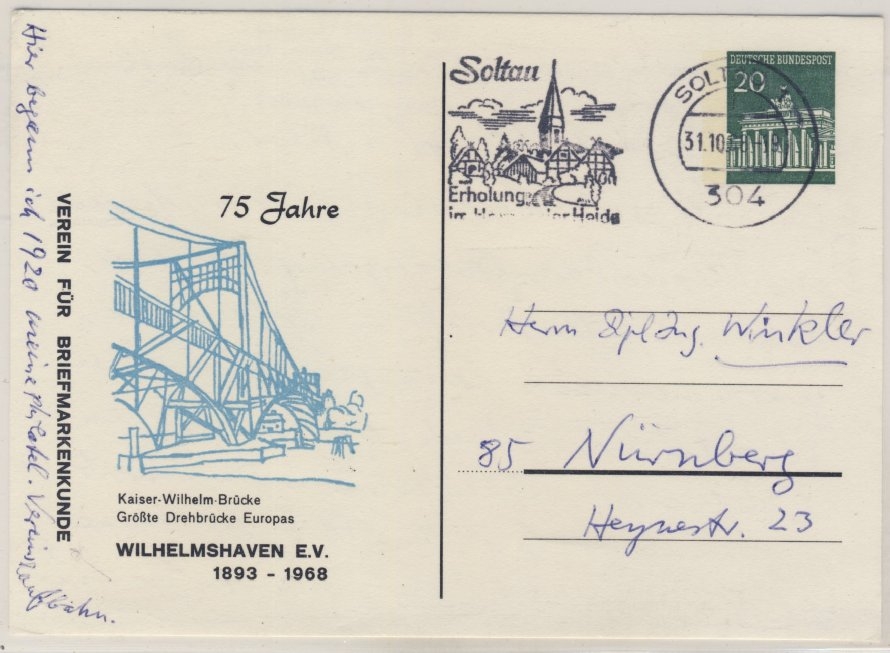 Hier begann ich 1920 meine philatel. Vereinslaufbahn.
VEREIN FÜR BRIEFMARKENKUNDE
75 Jahre
Kaiser-Wilhelm-Brücke
Größte Drehbrücke Europas
WILHELMSHAVEN E.V.
1893 - 1968
Soltau
Erholung
im der Heide
SOLTAU
31.10
304
DEUTSCHE BUNDESPOST
20
Herrn Dipl. Ing. Winkler
85 Nürnberg
Heynestr. 23